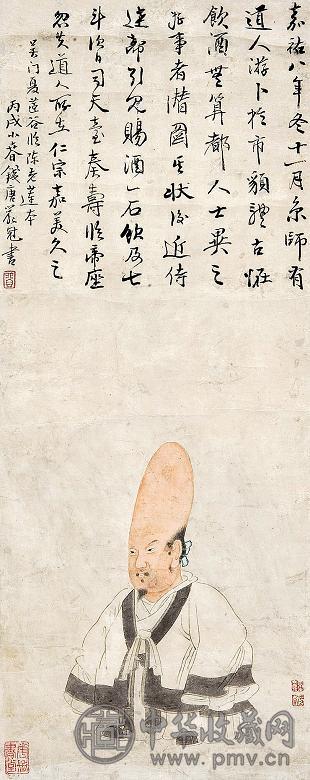 嘉祐八年冬十一月京師有
道人游卜於市貌體古怪
飲酒無算都人士異之
好事者潜圖其狀後近侍
達帝引見賜酒一石飲及七
斗次日司天臺奏壽臨帝座
忽失道人所在仁宗嘉美久之
吴门夏谷临陈老蓮本
丙戌小春錢唐嚴冠書
中华收藏网
www.pmv.cn